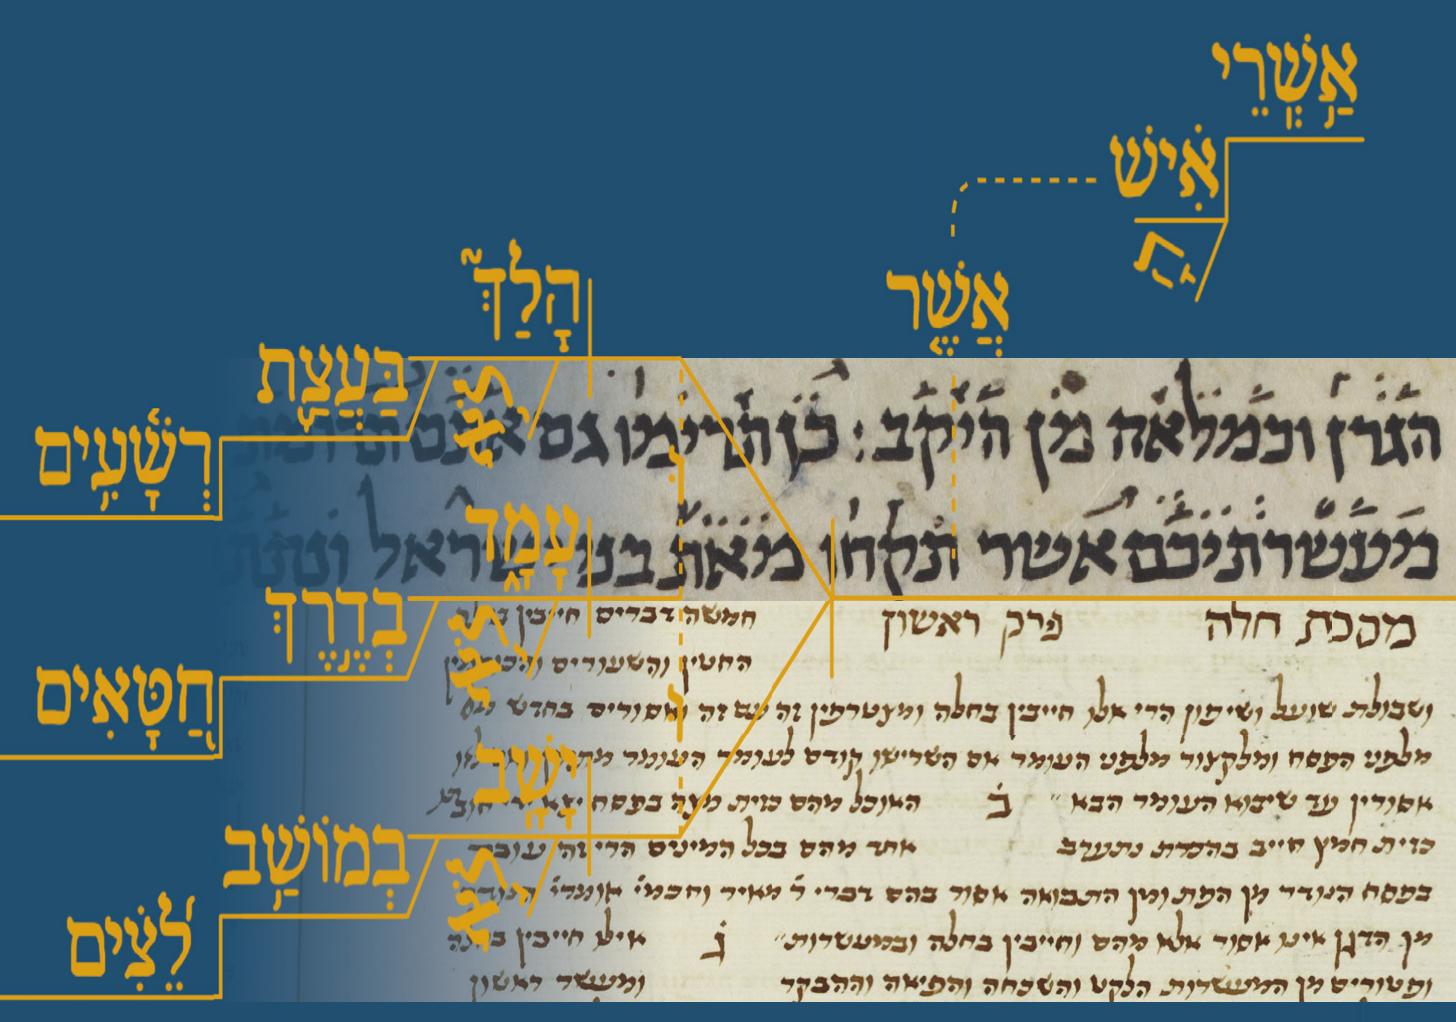 אַ֥שְֽׁרֵי
אִ֗ישׁ
הָ
אֲשֶׁ֤ר
הָלַךְ֮
לֹ֥א
בַּעֲצַ֪ת
רְשָׁ֫עִ֥ים
וּ
עָמָ֑ד
לֹ֥א
בְדֶ֣רֶךְ
חַ֭טָּאִים
וּ
יָשָֽׁב
לֹ֣א
בְמוֹשַׁ֥ב
לֵ֝צִ֗ים
הגרן וכמלאה מן היקב : כן תרימו גם אתם תרומת
מעשרתיכם אשר תקחו מאת בני ישראל ונתתם
מסכת חלה פרק ראשון חמשה דברים חייבין בחלה
החטין והשעורים והכוסמין
ושבולת שועל ושיפון הרי אלו חייבין בחלה ומצטרפין זה עם זה ואסורים בחדש
מלפני הפסח ומלקצור מלפני העומר אם השרישו קודם לעומר העומר
אסורין עד שיבוא העומר הבא ב האוכל מהם כזית מצה בפסח יצא ידי
כזית חמץ חייב בהכרת נתערב אחד מהם בכל המינים הרי זה עובר
בפסח הנודר מן הפת ומן התבואה אסור בהם דברי ר' מאיר וחכמ' אומרי' הנודר
מן הדגן אינו אסור אלא מהם וחייבין בחלה ובמעשרות ג אילו חייבין בחלה
ופטורים מן המעשרות הלקט והשכחה והפיאה וההבקר ומעשר ראשון